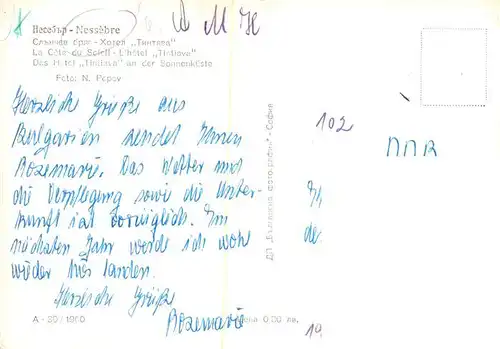 Несебър - Nessèbre
Слънчев бряг - Хотел „Тинтява"
La Côte du Soleil - L'hôtel „Tintiava"
Das Hotel „Tintiava" an der Sonnenküste
Foto: N. Popov
Herzliche Grüße aus
Bulgarien sendet Ihnen
Rozemarie. Das Wetter und
die Verpflegung sowie die Unter-
kunft ist vorzüglich. Im
nächsten Jahr werde ich wohl
wieder hier landen.
Herzliche Grüße
Rozemarie
А - 20/1960
ДП „Българска фотография" - София
цена 0,00 лв.
102
DDR
de